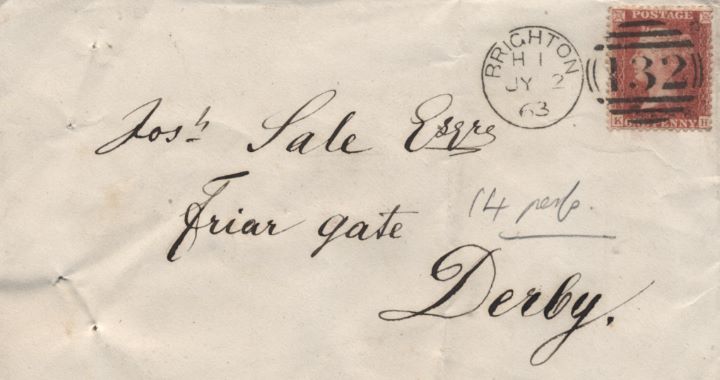 POSTAGE
BRIGHTON
H 1
JY 2
63
132
K ONE PENNY H
Josh Sale Esqre
Friar gate
14 perfs.
Derby.